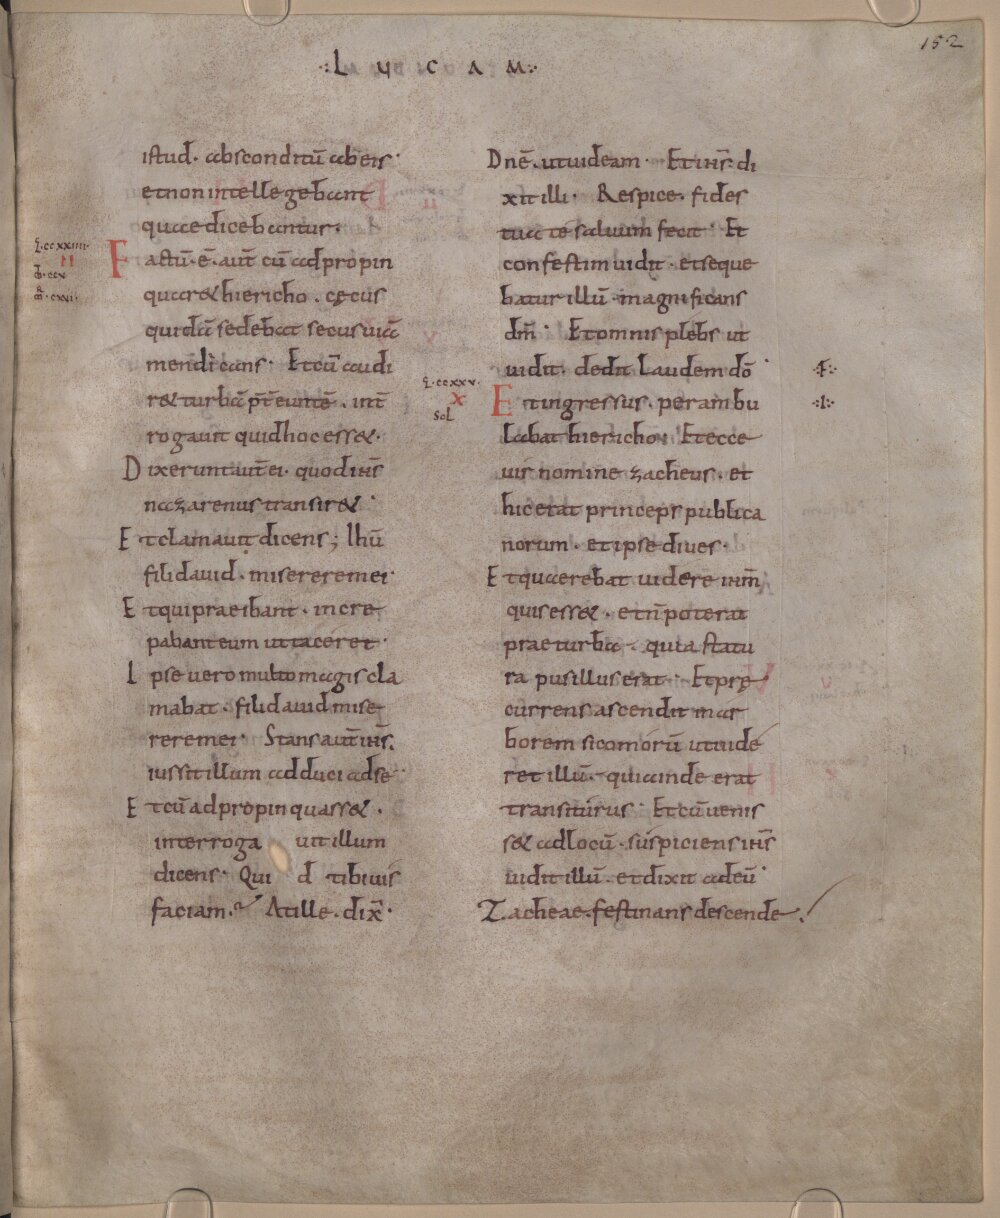 152
·:L U C A M:·
istud. absconditū ab eis·
et non intellegebant
quae dicebantur.
L·ccxxiiii·
II
M̄·ccv
M̄R·cxvi·
Factū·ē·aut̄ cū adpropin
quar& hiericho. cęcus
quidā sedebat secus uiā
mendicans· Et cū audi
r& turbā p̄t̄euntē. int̄
rogauit quid hoc ess&·
Dixerunt aut̄ ei· quod ih̄s
nazarenus transir&·
Et clamauit dicens; Ihū
fili dauid. miserere mei·
Et qui praeibant. incre
pabant eum ut taceret·
Ipse uero multo magis cla
mabat. fili dauid mise
rere mei· Stans aut̄ ih̄s.
iussit illum adduci ad se·
Et cū adpropinquass&.
interroga uit illum
dicens· Qui d tibi uis
faciam.? At ille. dix̄·
Dnē. ut uideam· Et ih̄s. di
xit illi· Respice. fides
tua te saluum fecit· Et
confestim uidit. et seque
batur illū magnificans
dm̄· Et omnis plebs ut
uidit. dedit laudem dō·
L·ccxxv·
X
sol
Et ingressus. perambu
labat hiericho; Et ecce
uir nomine zacheus. et
hic erat princeps publica
norum. et ipse diues·
Et quaerebat uidere ih̄m̄
quis ess&. et n̄ poterat
prae turba. quia statu
ra pusillus erat· Et prę
currens ascendit in ar
borem sicomorū ut uide
ret illū. quia inde erat
transiturus· Et cū uenis
s& ad locū. suspiciens ih̄s
uidit illū. et dixit ad eū·
Zacheae. festinans descende.
·:F:·
·:I:·